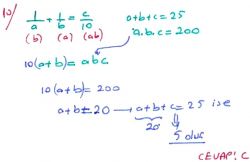 10) 1/a + 1/b = c/10 a+b+c=25
(b) (a) (ab) a.b.c = 200
10(a+b) = abc
10(a+b) = 200
a+b = 20 → a+b+c = 25 ise
20 5 olur
CEVAP: C